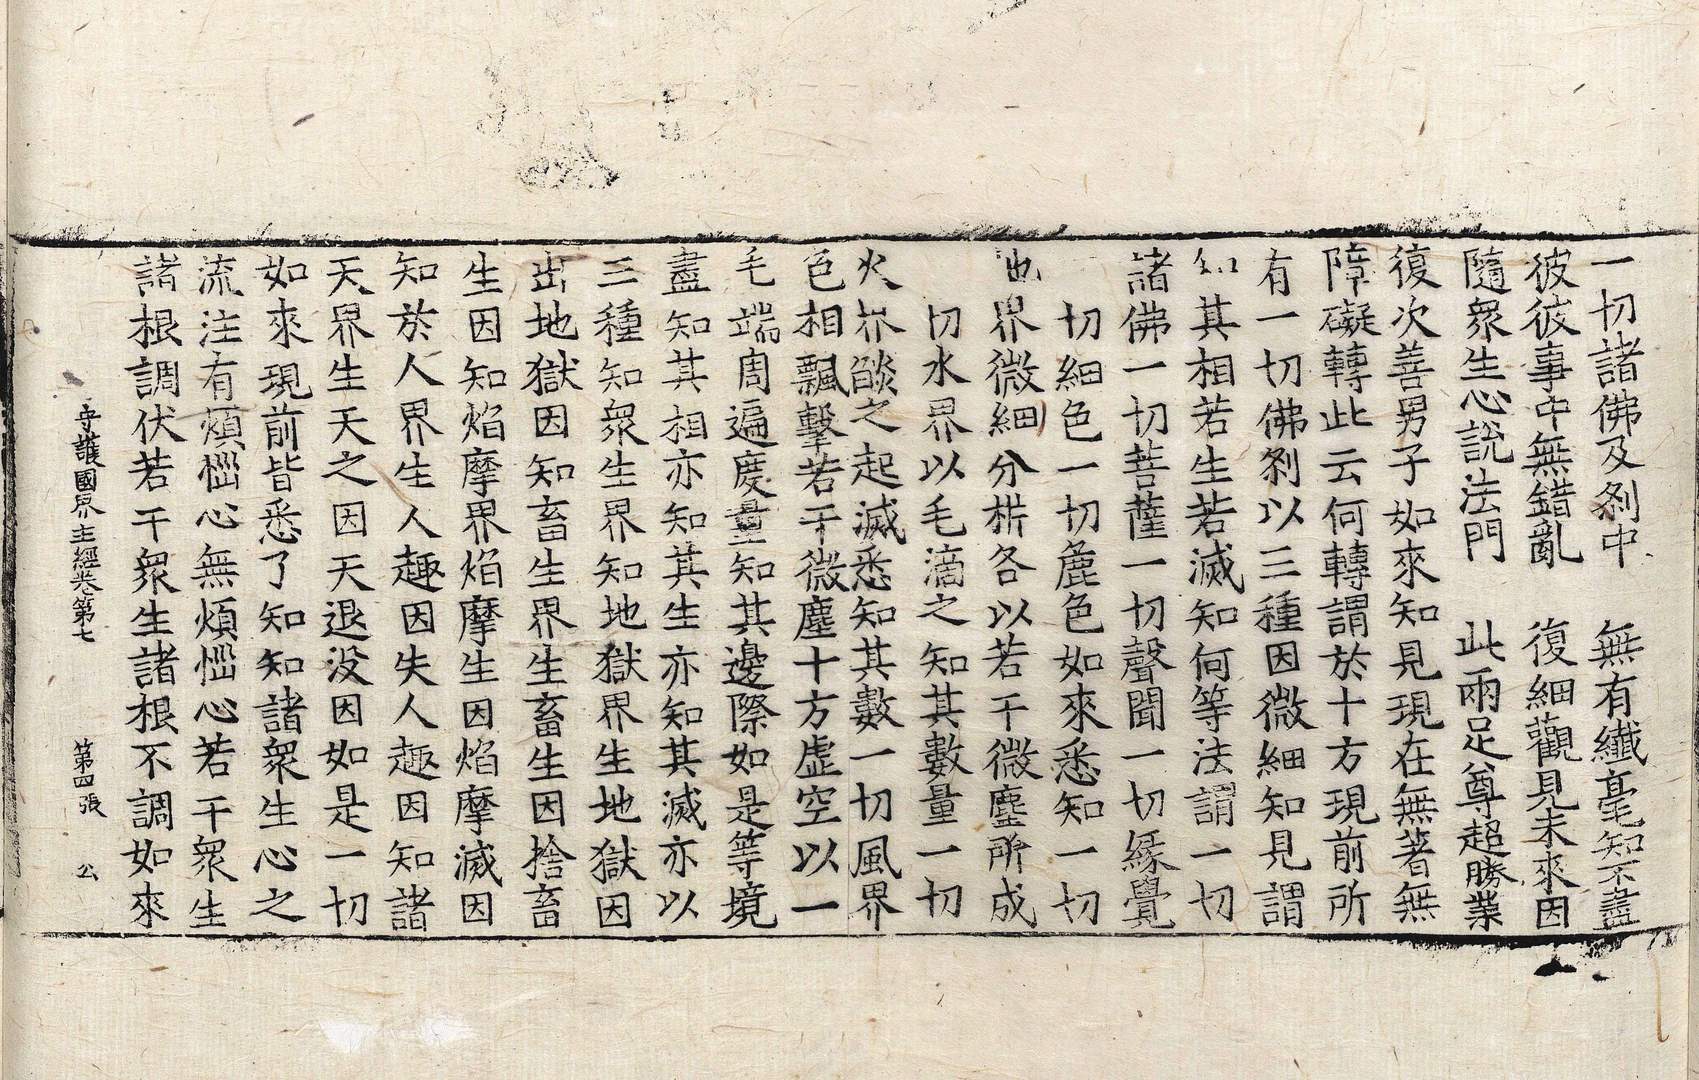 一切諸佛及剎中　無有纖毫知不盡
彼彼事中無錯亂　復細觀見未來因
隨衆生心說法門　此兩足尊超勝業
復次善男子如來知見現在無著無
障礙轉此云何轉謂於十方現前所
有一切佛剎以三種因微細知見謂
知其相若生若滅知何等法謂一切
諸佛一切菩薩一切聲聞一切緣覺
切細色一切麁色如來悉知一切
地界微細分析各以若干微塵所成
切水界以毛滴之知其數量一切
火界燄之起滅悉知其數一切風界
色相飄擊若干微塵十方虛空以一
毛端周遍度量知其邊際如是等境
盡知其相亦知其生亦知其滅亦以
三種知衆生界知地獄界生地獄因
出地獄因知畜生界生畜生因捨畜
生因知焰摩界焰摩生因焰摩滅因
知於人界生人趣因失人趣因知諸
天界生天之因天退没因如是一切
如來現前皆悉了知知諸衆生心之
流注有煩惱心無煩惱心若干衆生
諸根調伏若干衆生諸根不調如來
守護國界主經卷第七　第四張　公